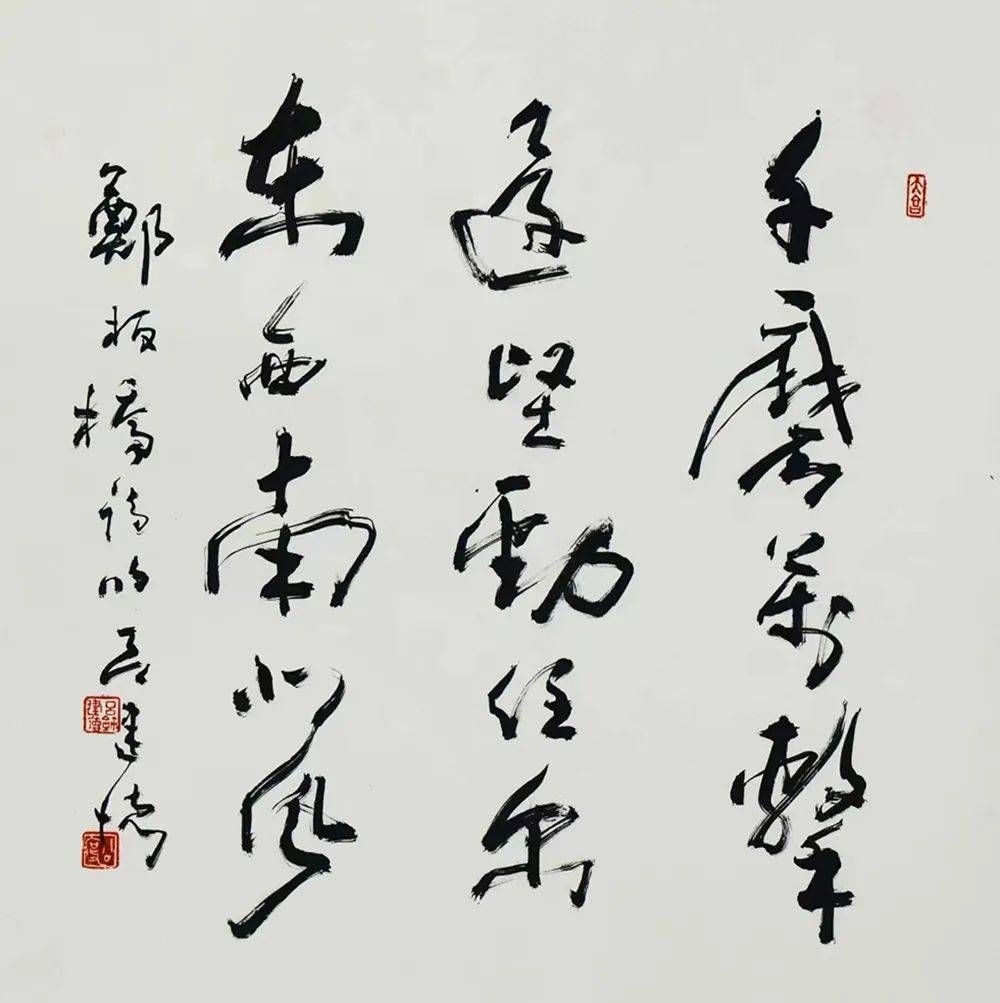 千磨萬擊
還堅勁任尔
東西南北風
鄭板橋詩吕建德